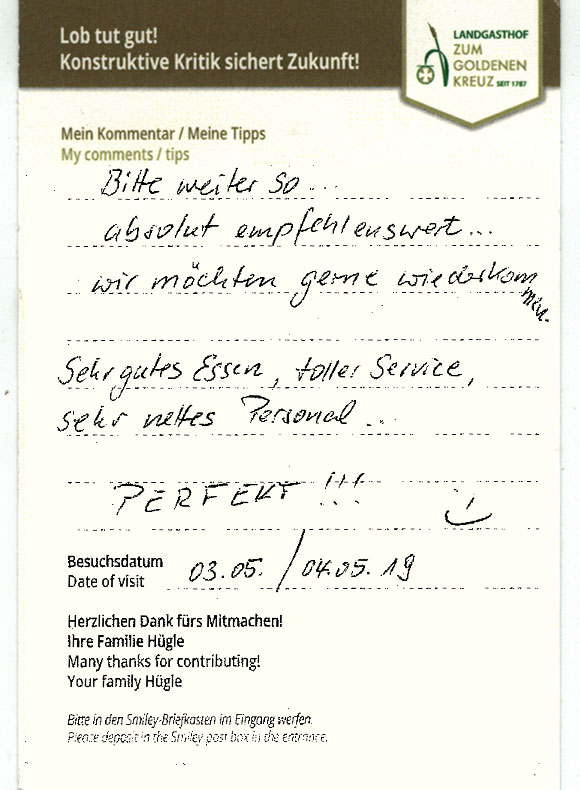 Lob tut gut!
Konstruktive Kritik sichert Zukunft!
LANDGASTHOF
ZUM
GOLDENEN
KREUZ SEIT 1787
Mein Kommentar / Meine Tipps
My comments / tips
Bitte weiter so...
absolut empfehlenswert...
wir möchten gerne wiederkom
men.
Sehr gutes Essen, toller Service,
sehr nettes Personal...
PERFEKT !!!
Besuchsdatum
Date of visit
03.05. / 04.05.19
Herzlichen Dank fürs Mitmachen!
Ihre Familie Hügle
Many thanks for contributing!
Your family Hügle
Bitte in den Smiley-Briefkasten im Eingang werfen.
Please deposit in the Smiley post box in the entrance.